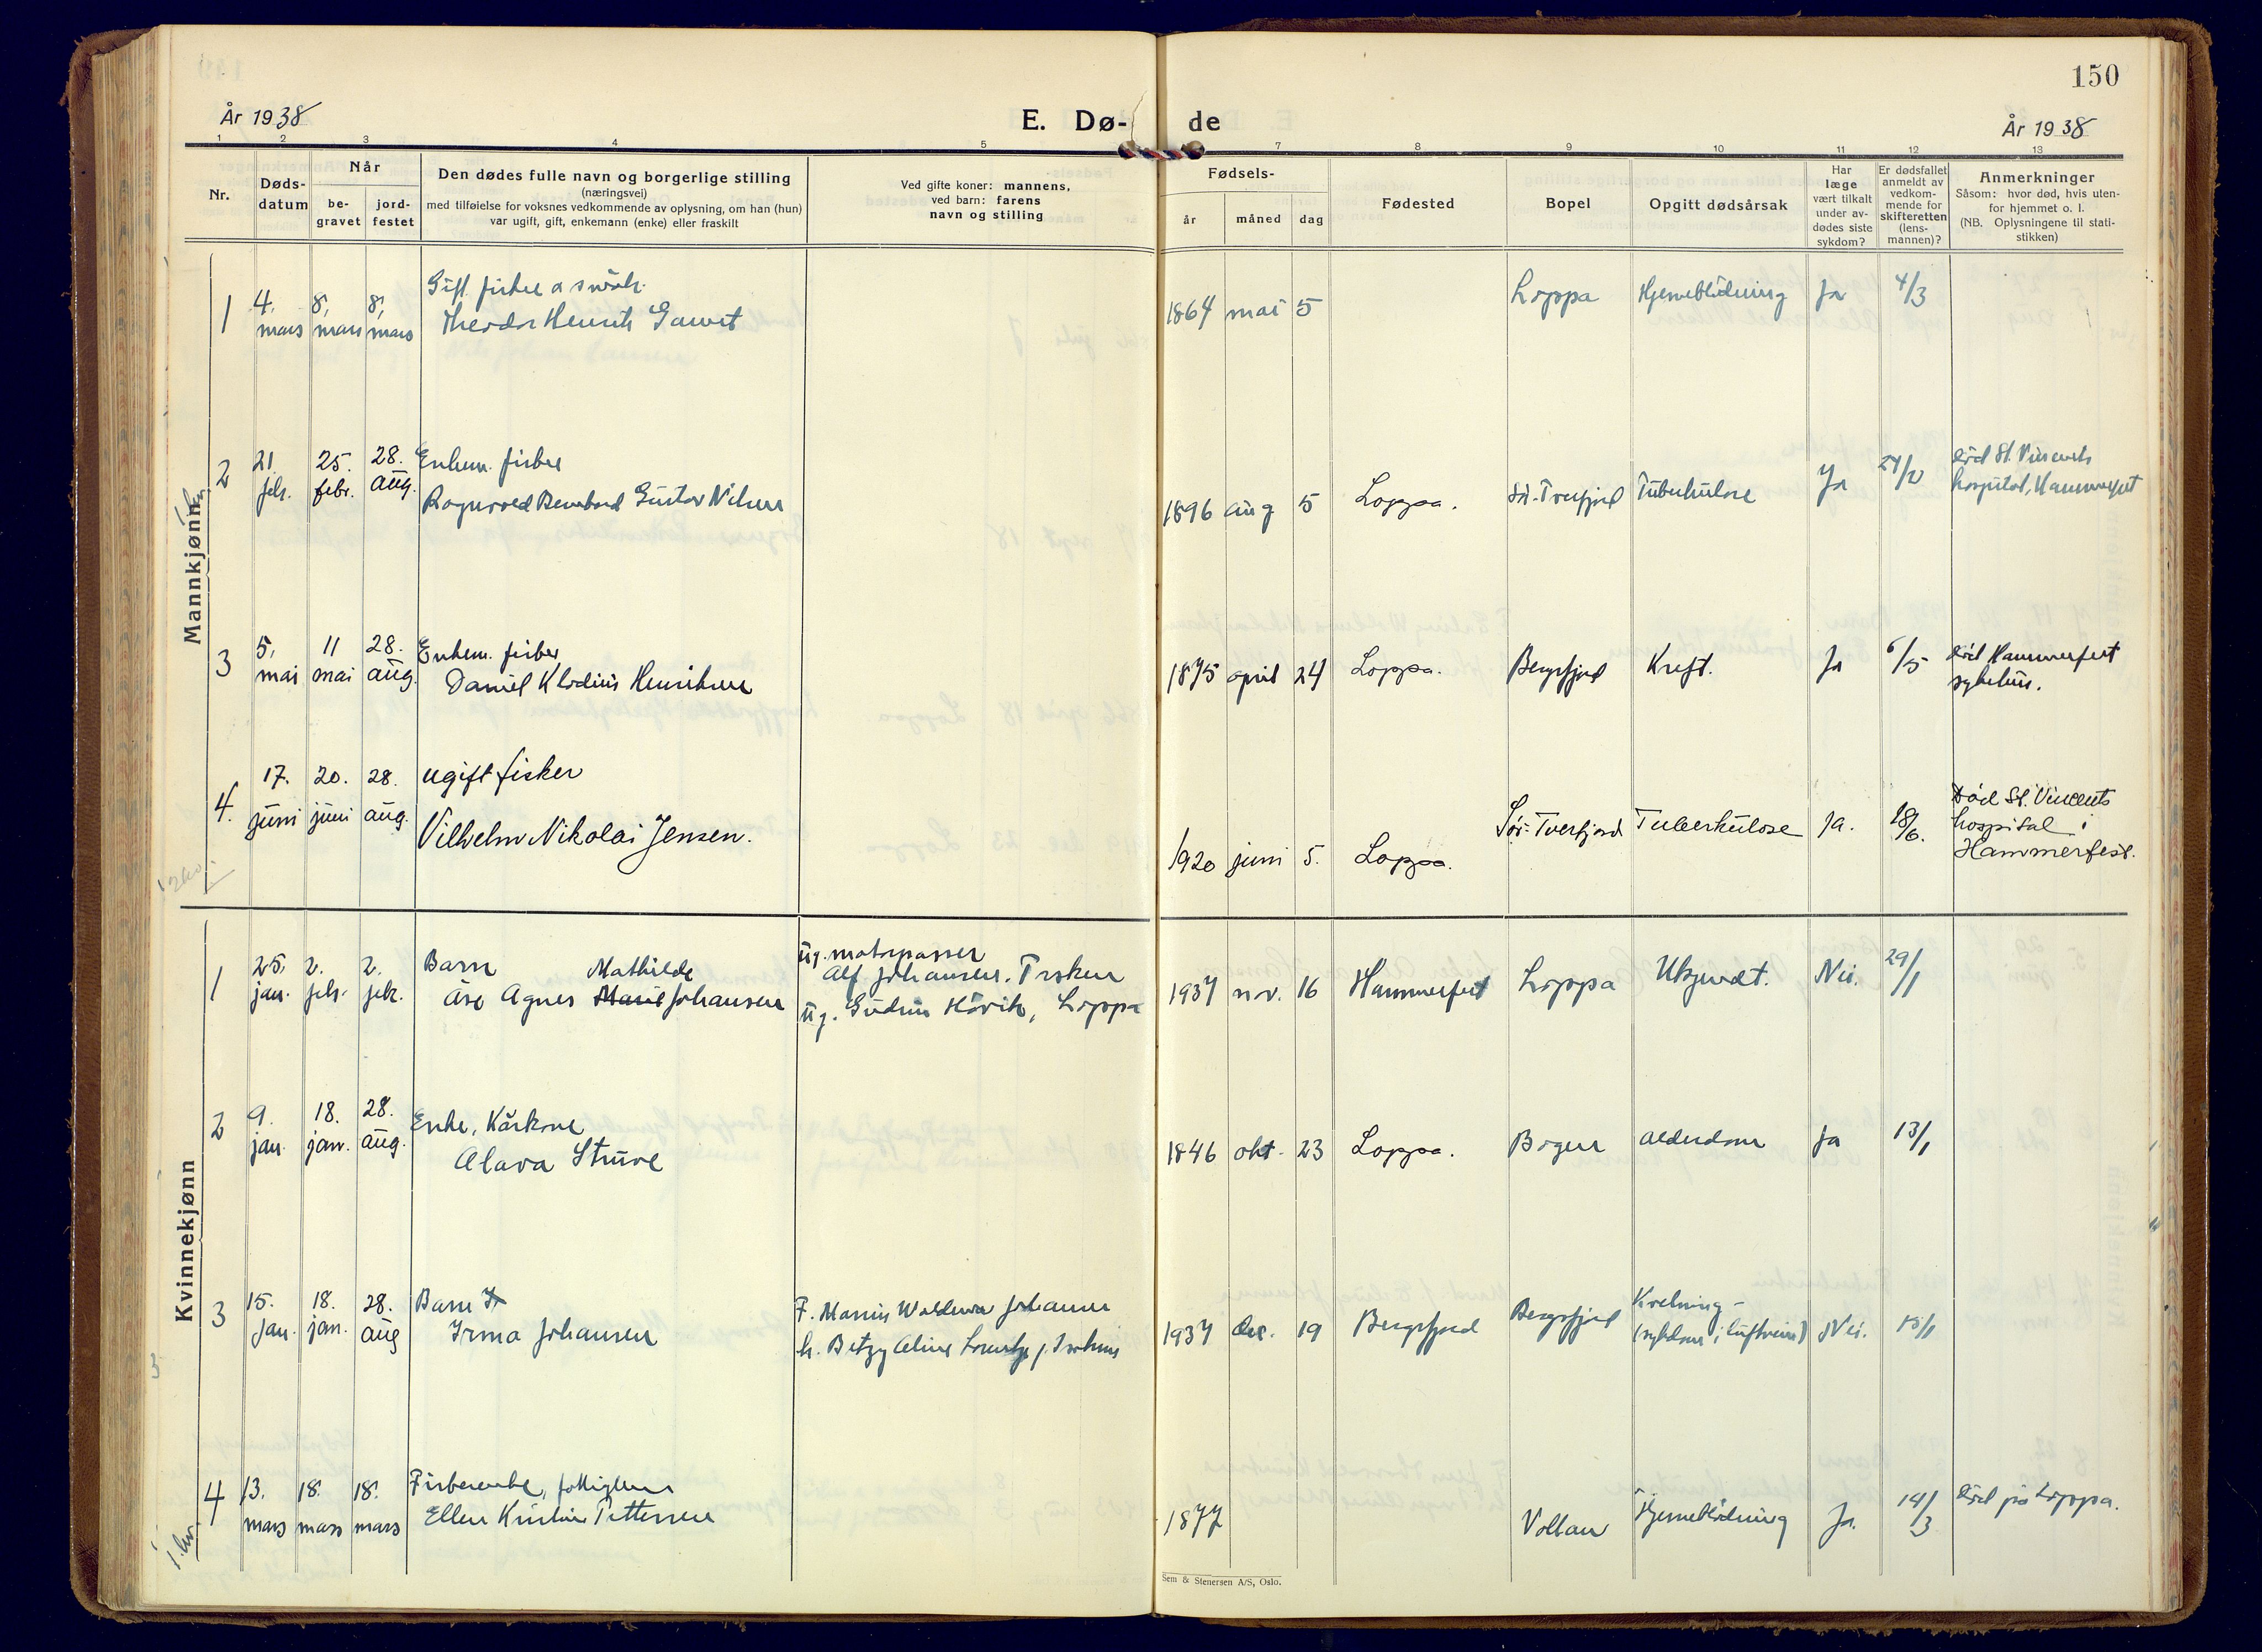 150
År 1938
E. Dø-
de
År 1938
1 2 3 4 5 7 8 9 10 11 12 13
Nr.
Døds-
datum
Når
be-
gravet
jord-
festet
Den dødes fulle navn og borgerlige stilling
(næringsvei)
med tilføielse for voksnes vedkommende av oplysning, om han (hun)
var ugift, gift, enkemann (enke) eller fraskilt
Ved gifte koner: mannens,
ved barn: farens
navn og stilling
Fødsels-
år måned dag
Fødested
Bopel
Opgitt dødsårsak
Har
læge
vært tilkalt
under av-
dødes siste
sykdom?
Er dødsfallet
anmeldt av
vedkom-
mende for
skifteretten
(lens-
mannen)?
Anmerkninger
Såsom: hvor død, hvis uten-
for hjemmet o. l.
(NB. Oplysningene til stati-
stikken)
Mannkjønn
1 4. mars 8. mars 8. mars
Gift fisker
Theodor Henrik
1864 mai 5 Loppa Hjerneblødning Ja 4/3
2 21. febr. 25. febr. 28. aug.
Enkem. fisker
Gustav Nilsen
1896 aug 5 Loppa. Tuberkulose Ja
død St. Vincents
hospital, Hammerfest
3 5. mai 11 mai 28. aug.
Enkem. fisker
Daniel Klodius Henriksen
1875 april 24 Loppa. Bergsfjord Kreft. Ja 6/5
død Hammerfest
sykehus.
4. 17. juni 20. juni 28. aug.
ugift fisker
Vilhelm Nikolai Jensen.
1920 juni 5. Loppa. Sør-Tverfjord Tuberkulose Ja. 18/6.
Død St. Vincents
hospital i
Hammerfest.
Kvinnekjønn
1 25. jan. 2. febr. 2. febr.
Barn Mathilde
Åse Agnes Marie Johansen
ug. motorpasser
Alf Johansen, Trsken
ug. Gudrun Hövik, Loppa
1937 nov. 16 Hammerfest Loppa Ukjendt. Nei. 29/1
2 9. jan. 18. jan. 28. aug.
Enke, Kårkone
Alava Struve
1846 okt. 23 Loppa. Bogen alderdom Ja 13/1
3 15. jan. 18. jan. 28. aug
Barn
Irma Johansen
F. Marius Waldemar Johansen
h. Betzy Aline
1937 des. 19 Bergsfjord Bergsfjord
Kvelning -
(sykdom i luftveiene) Nei. 15/1
4 13. mars 18. mars 18. mars
Fiskerenke, fattiglem
Ellen Kristine Pettersen
1877 Hjerneblødning Ja. 14/3
død på Loppa.
Sem & Stenersen A/S, Oslo.